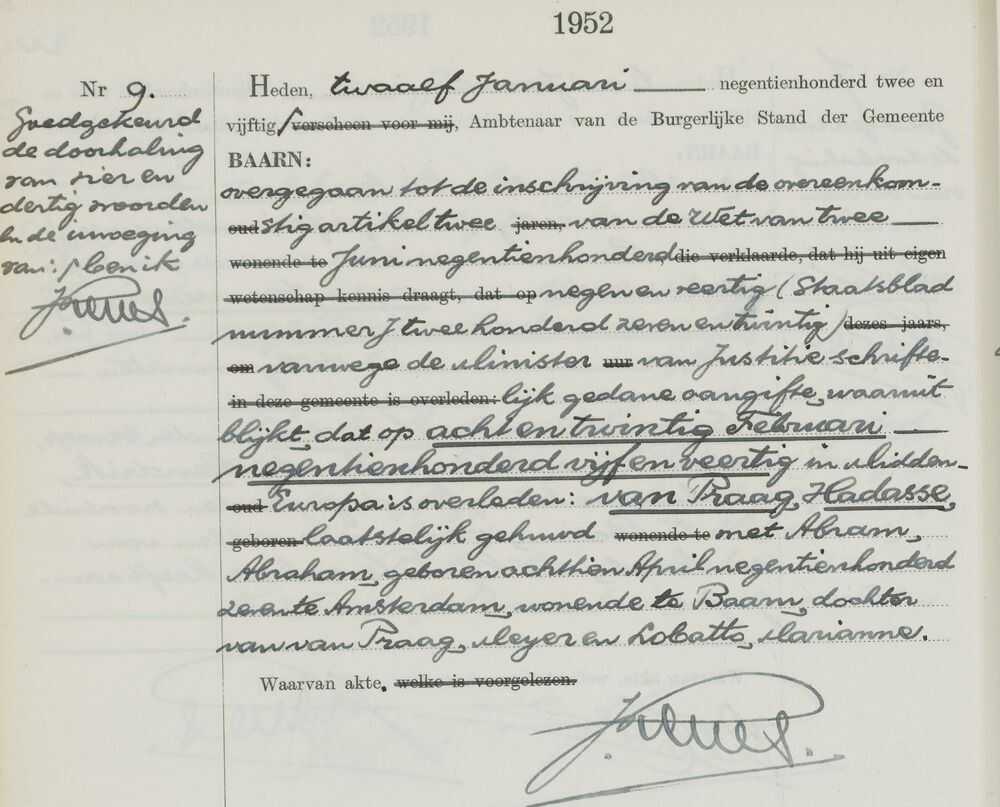 1952
Nr 9.
Goedgekeurd
de doorhaling
van vier en
dertig woorden
en de invoeging
van: / ben ik
Heden, twaalf Januari negentienhonderd twee en
vijftig / verscheen voor mij, Ambtenaar van de Burgerlijke Stand der Gemeente
BAARN:
overgegaan tot de inschrijving van de overeenkom-
oud stig artikel twee jaren, van de Wet van twee
wonende te Juni negentienhonderd die verklaarde, dat hij uit eigen
wetenschap kennis draagt, dat op negen en veertig (Staatsblad
nummer J twee honderd zeven en twintig) dezes jaars,
om vanwege de Minister uur van Justitie schrifte-
in deze gemeente is overleden: lijk gedane aangifte, waaruit
blijkt, dat op acht en twintig Februari
negentienhonderd vijf en veertig in Midden-
oud Europa is overleden: van Praag, Hadasse,
geboren laatstelijk gehuwd wonende te met Abram,
Abraham, geboren achttien April negentienhonderd
zeven te Amsterdam, wonende te Baarn, dochter
van van Praag, Meyer en Lobatto, Marianne.
Waarvan akte, welke is voorgelezen.